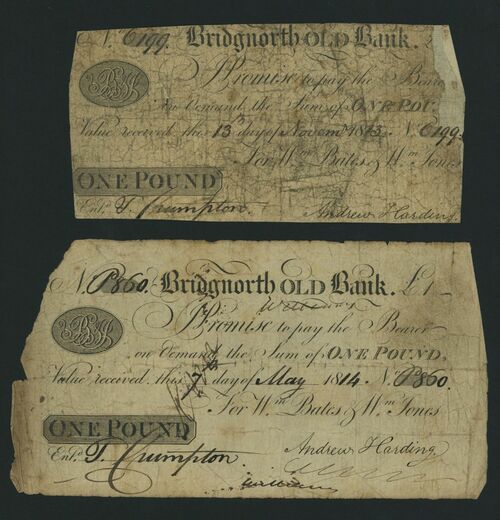 N. C199. Bridgnorth OLD Bank. £
I Promise to pay the Beare
on Demand, the Sum of ONE POU
Value received this 13th day of Novemr 1813. N. C199.
For Wm. Bates & Wm. Jones
ONE POUND
Entd. T. Crumpton. Andrew Harding.
N. P860. Bridgnorth OLD Bank. £1
I Promise to pay the Bearer
on Demand, the Sum of ONE POUND,
Value received, this 17 day of May 1814. N. P860.
For Wm. Bates & Wm. Jones
ONE POUND
Andrew Harding
Entd. T. Crumpton.